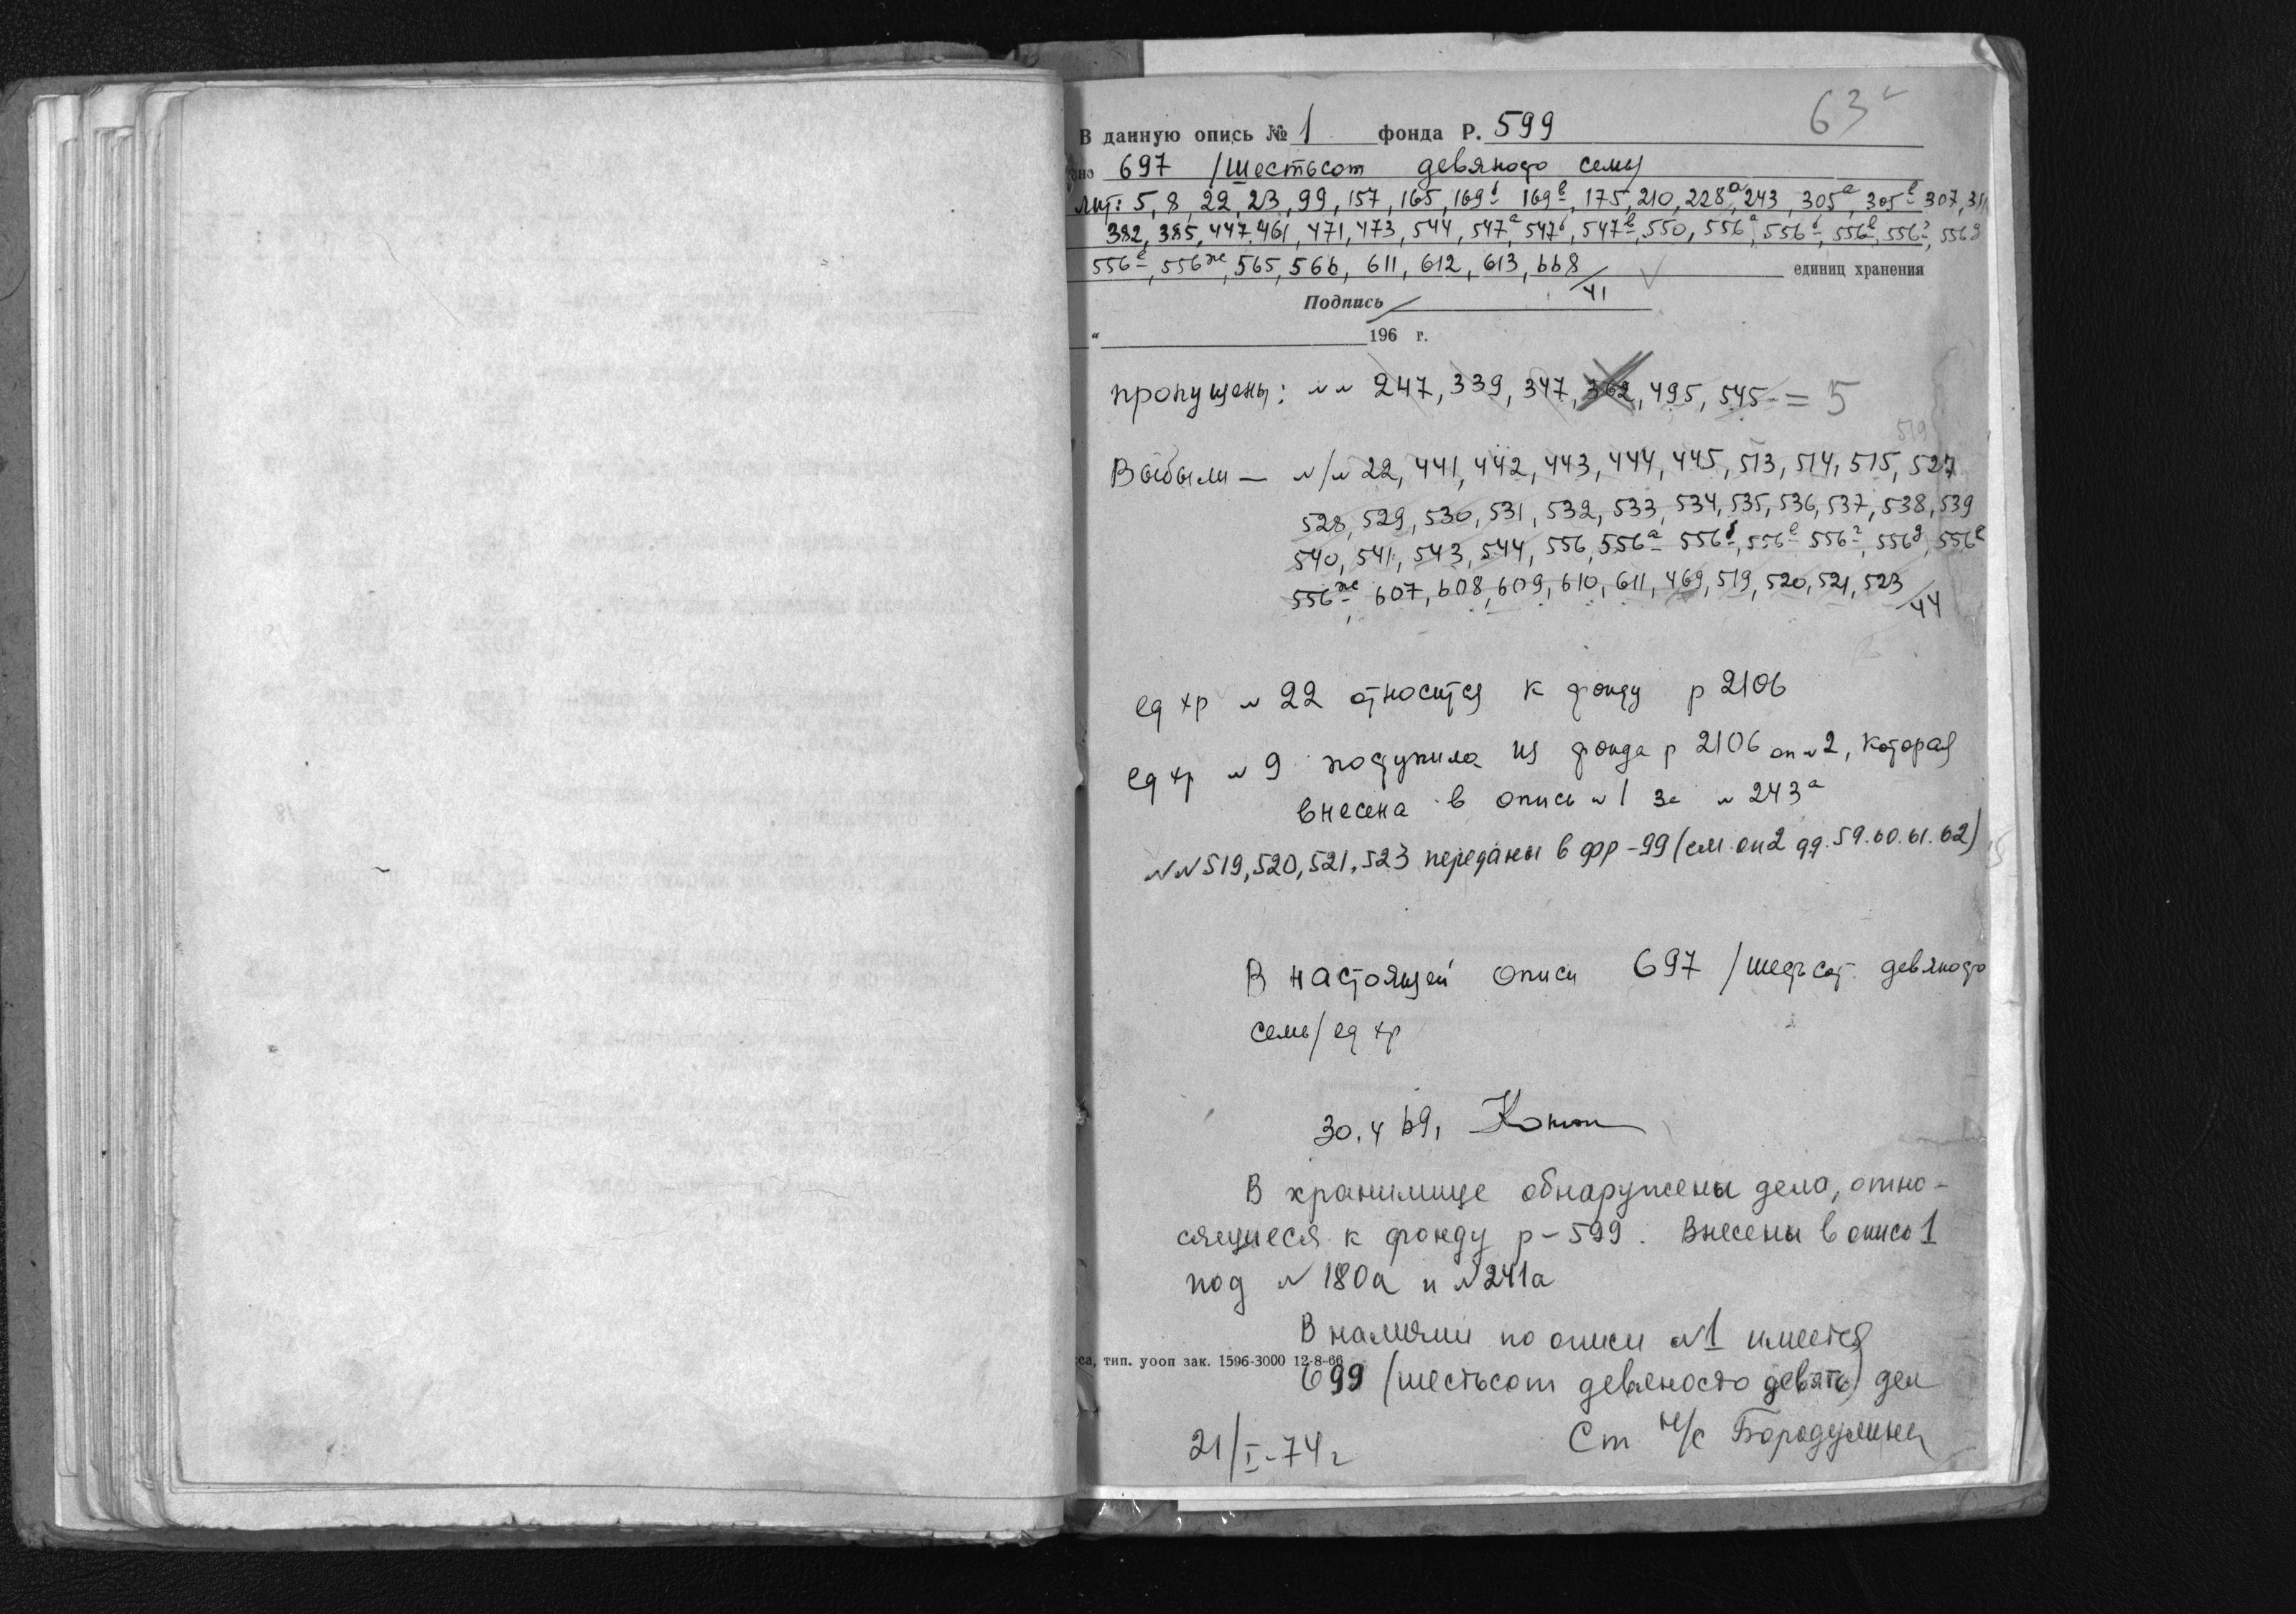 63
В данную опись № 1 фонда Р. 599
но 697 /шестьсот девяносто семь/
лит: 5, 8, 22, 23, 99, 157, 165, 169б 169в, 175, 210, 228а, 243, 305а, 305в 307, 311
382, 385, 447, 461, 471, 473, 544, 547а 547б, 547в, 550, 556а, 556б, 556в, 556г, 556д
556е, 556ж, 565, 566, 611, 612, 613, 668 /41 единиц хранения
Подпись
“ 196 г.
пропущены: №№ 247, 339, 347, 362, 495, 545 = 5
519
Выбыли — №/№ 22, 441, 442, 443, 444, 445, 513, 514, 515, 527
528, 529, 530, 531, 532, 533, 534, 535, 536, 537, 538, 539
540, 541, 543, 544, 556, 556а 556б, 556в 556г, 556д, 556е
556ж, 607, 608, 609, 610, 611, 469, 519, 520, 521, 523 /44
ед хр № 22 относится к фонду р 2106
ед хр № 9 поступила из фонда р 2106 оп № 2, которая
внесена в опись № 1 за № 243а
№№ 519, 520, 521, 523 переданы в фр-99 (см. оп 2 дд. 59. 60. 61. 62)
В настоящей описи 697 /шестьсот девяносто
семь/ ед хр
30.4 69,
В хранилище обнаружены дела, отно-
сящиеся к фонду р-599. Внесены в опись 1
под № 180а и № 241а
В наличии по описи № 1 имеется
са, тип. уооп зак. 1596-3000 12-8-66
699 (шестьсот девяносто девять) дел
21/I-74г Ст н/с Бородулина